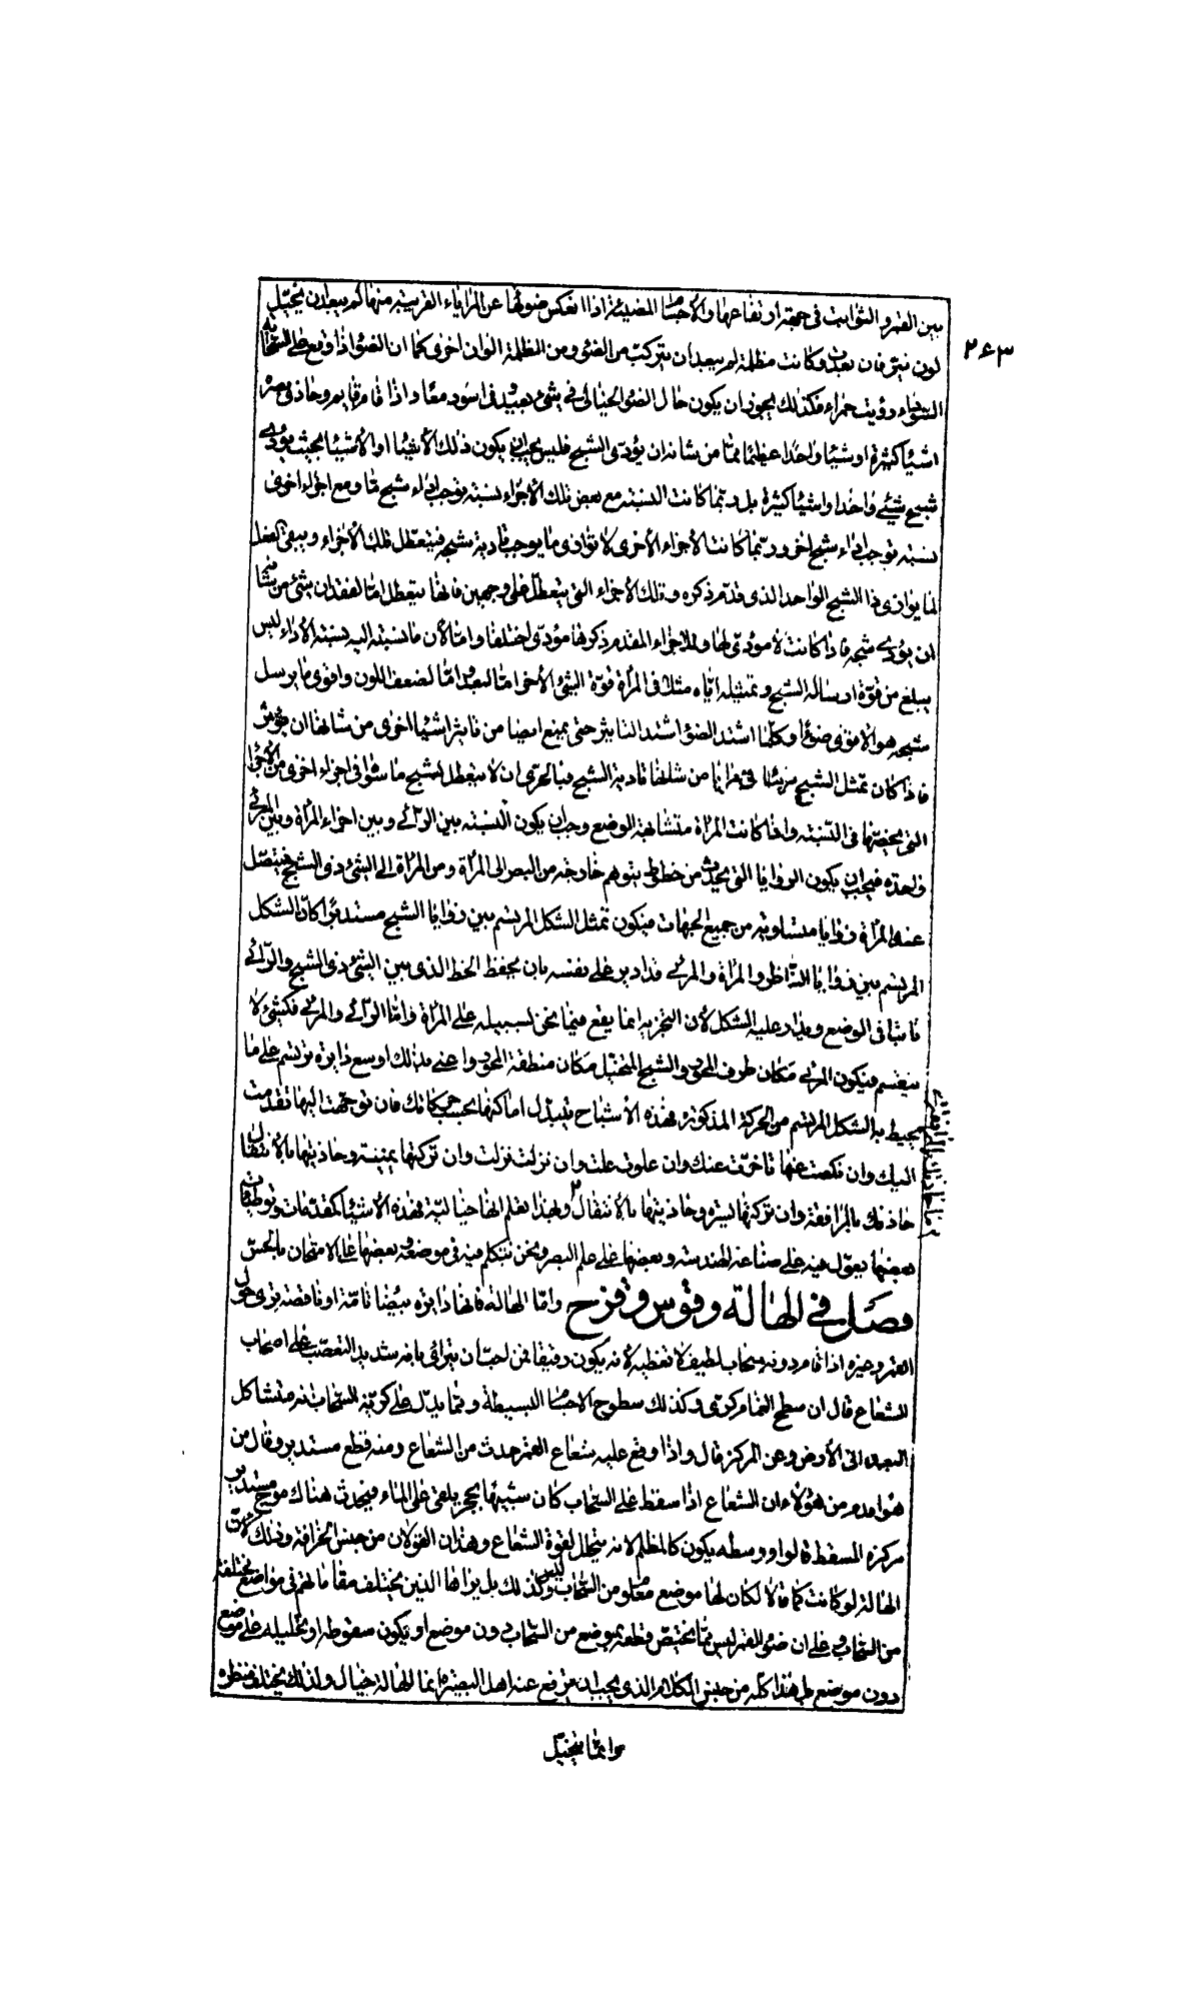 ٢٤٣
بين القمر والثوابت فى جهة ارتفاعها والأجسام المضيئة اذا انعكس ضوئها عن المرايا القريبة منها لم يبعد ان يتخيل
لون نير فان بعدت وكانت مظلمة لم يبعد ان يتركب من الضوء ومن الظلمة الوان اخرى كما ان الضوء اذا وقع على السحابة
السوداء رؤيت حمراء فكذلك يجوز ان يكون حال الضوء الخيالى فى شىء بعيد فى اسود معًا واذا قام مقابل وحاذى مبصرًا
اشياء كثيرة او شيئًا واحدًا عظيمًا مما من شانه ان يؤدى الشبح فليس يجب ان يكون ذلك الأشياء او الأشياء بحيث يؤدى
شبح شىء واحد او اشياء كثيرة بل ربما كانت النسبة مع بعض تلك الأجزاء نسبة توجب اداء شبح ما ومع اجزاء اخرى
نسبة توجب اداء شبح اخر وربما كانت الأجزاء الأخرى لا توازى ما يوجب تادية شبحه فيتعطل تلك الأجزاء ويبقى الفعل
لما يوازى ذا الشبح الواحد الذى قدم ذكره وتلك الأجزاء التى يتعطل على وجهين فانها يتعطل اما لفقدان شىء من شانه
ان يؤدى شبحه فاذا كانت لا مؤدى لها وللاجزاء المقدم ذكرها مؤدى اختلفا واما لأن ما نسبته اليه نسبة الأداء ليس
يبلغ من قوة ارساله الشبح وتمثيله اياه مثلًا فى المرأة قوة الشىء الأخر اما لبعد واما لضعف اللون واقوى ما يرسل
شبحه هو الاقوى ضوءًا وكلما اشتد الضوء اشتد التاثير حتى يمنع ايضا من تاثير اشياء اخرى من شانها ان يؤثر
فاذا كان تمثل الشبح مرئيًا فى مرايا من شانها تادية الشبح فبالحرى ان لا يتعطل لشبح ما سوا فى اجزاء اخرى من الأجزاء
التى يخصها فى النسبة واذا كانت المرأة متشابهة الوضع وجب ان يكون النسبة بين الرائى وبين اجزاء المرأة وبين المرئى
واحدة فيجب ان يكون الزوايا التى يحدث من خطوط يتوهم خارجة من البصر الى المرأة ومن المرأة الى الشىء ذى الشبح فيتصل
عند المرأة زوايا متساوية من جميع الجهات فيكون تمثل الشكل المرتسم بين زوايا الشبح مستديرًا كان الشكل
المرتسم بين زوايا الناظر والمرأة والمرئى قد ادير على نفسه بان يحفظ الخط الذى بين الشىء ذى الشبح والرائى
ثابتا فى الوضع ويدار عليه الشكل لأن التجزية انما يقع فيما نحن بسبيله على المرأة واما الرائى والمرئى فكشىء لا
ينقسم فيكون المرئى مكان طرف المحور والشبح المتخيل مكان منطقة المحور واعنى بذلك اوسع دايرة ترتسم على ما
يحيط به الشكل المرتسم من الحركة المذكورة فهذه الأشباح يتبدل اماكنها بحسب حركاتك فان توجهت اليها تقدمت
اليك وان نكصت عنها تاخرت عنك وان علوت علت وان نزلت نزلت وان تركتها يمينة وحاذيتها بالأنتقال
حاذتك بالمرافقة وان تركتها يسرة وحاذيتها بالأنتقال وبهذا تعلم انها خيالية فهذه الأشياء كمقدمات وتوطيات
بعضها يعول فيه على صناعة الهندسة وبعضها على علم البصر ونحن نتكلم فيه فى موضعه وبعضها على الامتحان بالحس
فصل فى الهالة وقوس وقزح واما الهالة فانها دايرة بيضا تامة او ناقصة ترى حول
القمر وغيره اذا قام دونه سحاب لطيف لا تغطيه لأنه يكون رقيقا فمن احب ان يترائى بانه شديد التعصب على اصحاب
الشعاع قال ان سطح الغمام كرى وكذلك سطوح الاجسام البسيطة ومما يدل على كرية السحاب انه متشاكل
البعد الى الأرض وعن المركز قال واذا وقع عليه شعاع القمر حدث من الشعاع ومنه قطع مستدير وقال من
هو اقدم من هؤلاء ان الشعاع اذا سقط على السحاب كان شبيها بحجر يلقى على الماء فيحدث هناك موج مستدير
مركزه المسقط قالوا ووسطه يكون كالمظلم لانه يتحلل لقوة الشعاع وهذان القولان من جنس الخرافة وذلك لأن
الهالة لو كانت كما قالا لكان لها موضع معلوم من السحاب وليس كذلك بل يراها الذين يختلف مقاماتهم فى مواضع مختلفة
من السحاب وعلى ان ضوء القمر ليس مما يختص وقعه بموضع من السحاب دون موضع او يكون سقوطه او تحليله على موضع
دون موضع بل هذا كله من جنس الكلام الذى يجب ان يرفع عنه اهل البصيرة انما الهالة خيال ولذلك يختلف منظره
وانما يتخيل